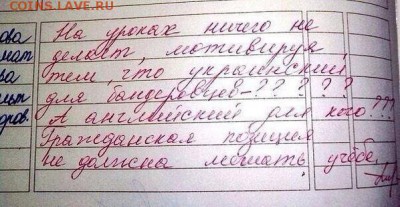 COINS.LAVE.RU
На уроках ничего не
делает, мотивируя
тем, что украинский
для бандеровцев-?????
А английский для кого???
Гражданская позиция
не должна мешать учёбе.